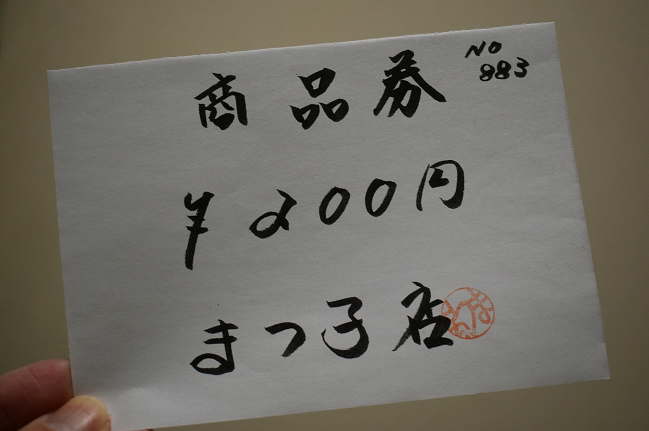 NO
883
商品券
¥200円
まつ子店